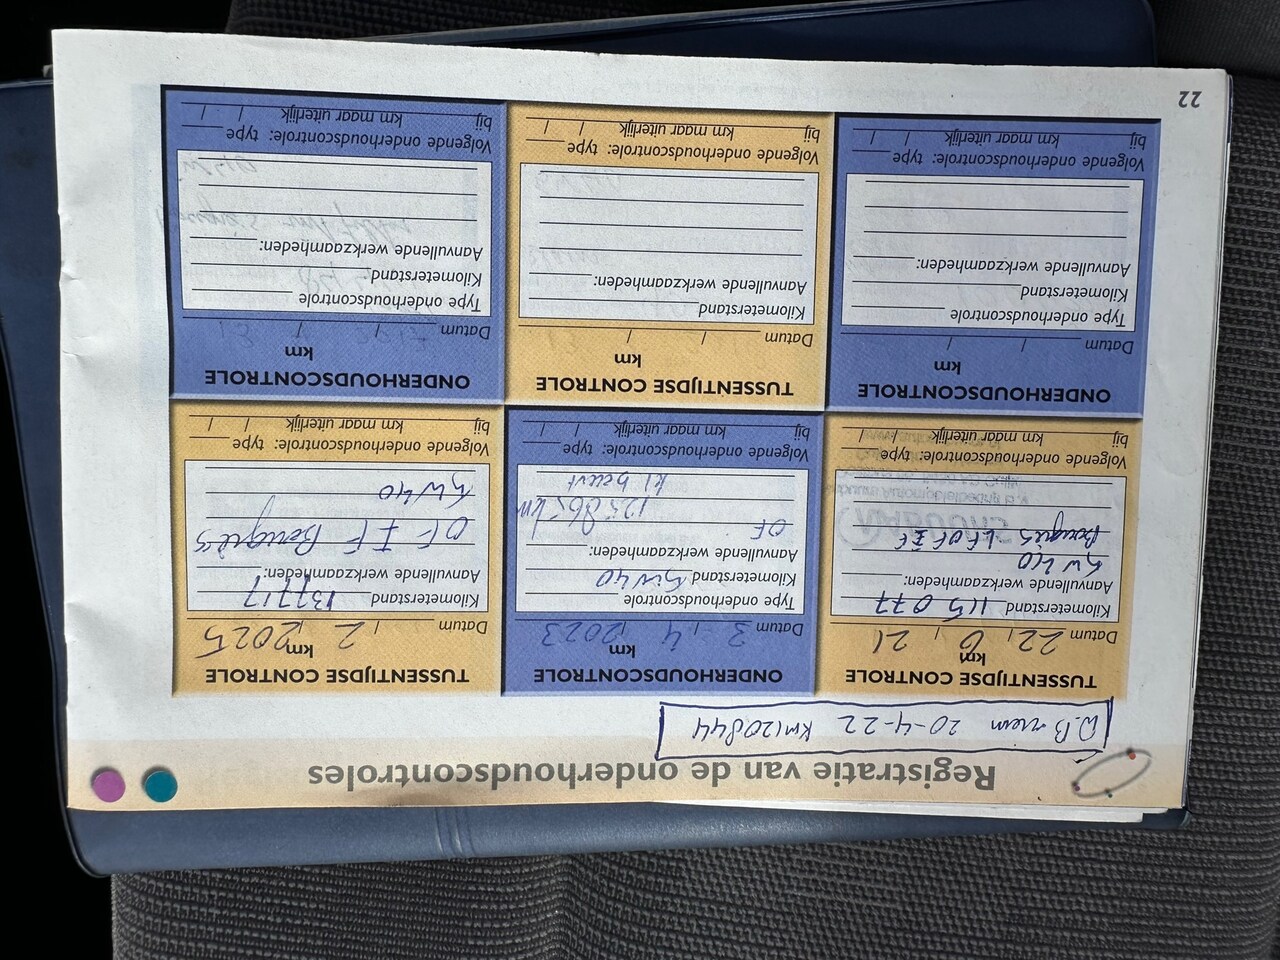 Registratie van de onderhoudscontroles
20-4-22 km120844
TUSSENTIJDSE CONTROLE
km
Datum 22 / 6 / 21
Kilometerstand 115 077
Aanvullende werkzaamheden:
5W40
Bougies LF OF IF
Volgende onderhoudscontrole: type
bij km maar uiterlijk / /
ONDERHOUDSCONTROLE
km
Datum 3 - 4 2023
Type onderhoudscontrole
Kilometerstand 5W40
Aanvullende werkzaamheden:
OF 125865km
kl beurt
Volgende onderhoudscontrole: type
bij km maar uiterlijk / /
TUSSENTIJDSE CONTROLE
km
Datum / 2 / 2025
Kilometerstand 137717
Aanvullende werkzaamheden:
OF IF Bougies
5W40
Volgende onderhoudscontrole: type
bij km maar uiterlijk / /
ONDERHOUDSCONTROLE
km
Datum / /
Type onderhoudscontrole
Kilometerstand
Aanvullende werkzaamheden:
Volgende onderhoudscontrole: type
bij km maar uiterlijk / /
TUSSENTIJDSE CONTROLE
km
Datum / /
Kilometerstand
Aanvullende werkzaamheden:
Volgende onderhoudscontrole: type
bij km maar uiterlijk / /
ONDERHOUDSCONTROLE
km
Datum / /
Type onderhoudscontrole
Kilometerstand
Aanvullende werkzaamheden:
Volgende onderhoudscontrole: type
bij km maar uiterlijk / /
22